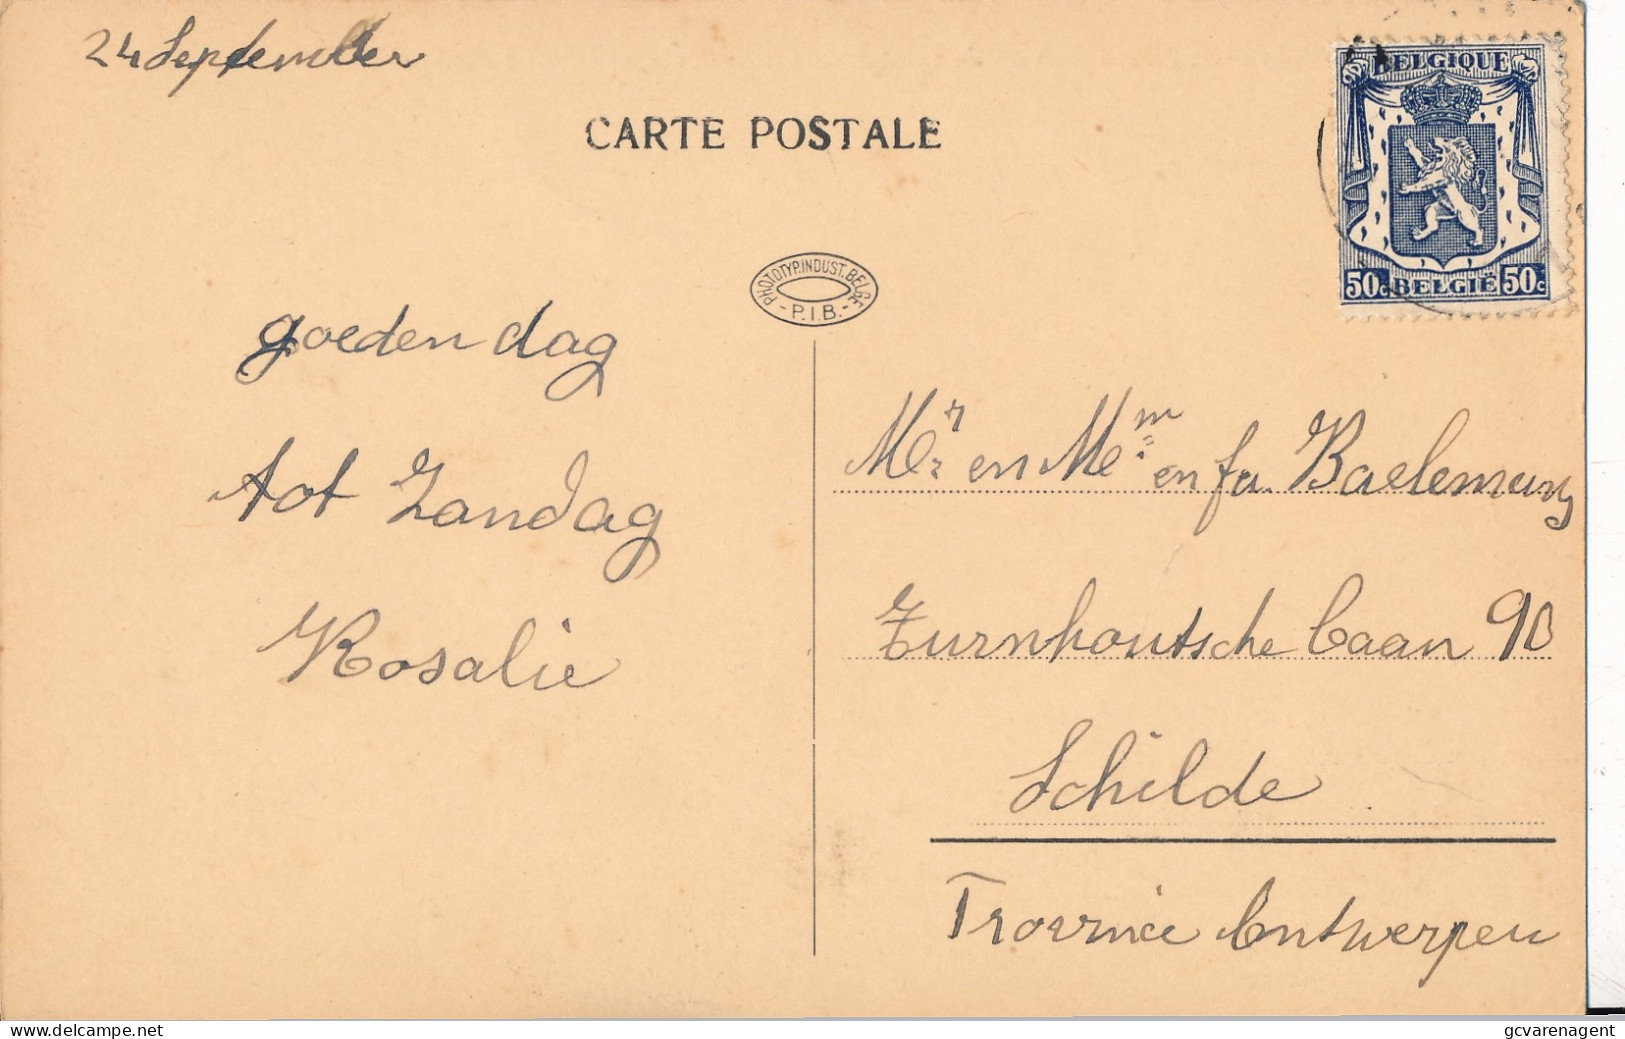 24 September
CARTE POSTALE
BELGIQUE
50c BELGIË 50c
PHOTOTYP. INDUST. BELGE
- P.I.B. -
goeden dag
tot Zondag
Rosalie
Mr en Mem en fa. Baelemans
Turnhoutsche baan 90
Schilde
Provincie Antwerpen
delcampe.net
gcvarenagent